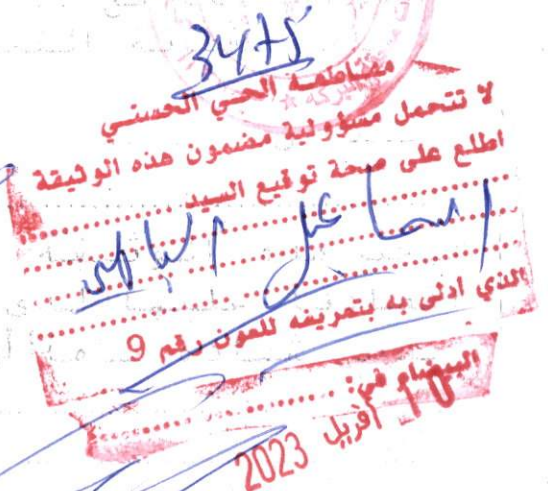 3475
مقاطعة الحي الحسني
لا تتحمل مسؤولية مضمون هذه الوثيقة
اطلع على صحة توقيع السيد
اسماعيل
الذي ادلى به بتعريفه للعون رقم 9
البيضاء في:
أفريل 2023